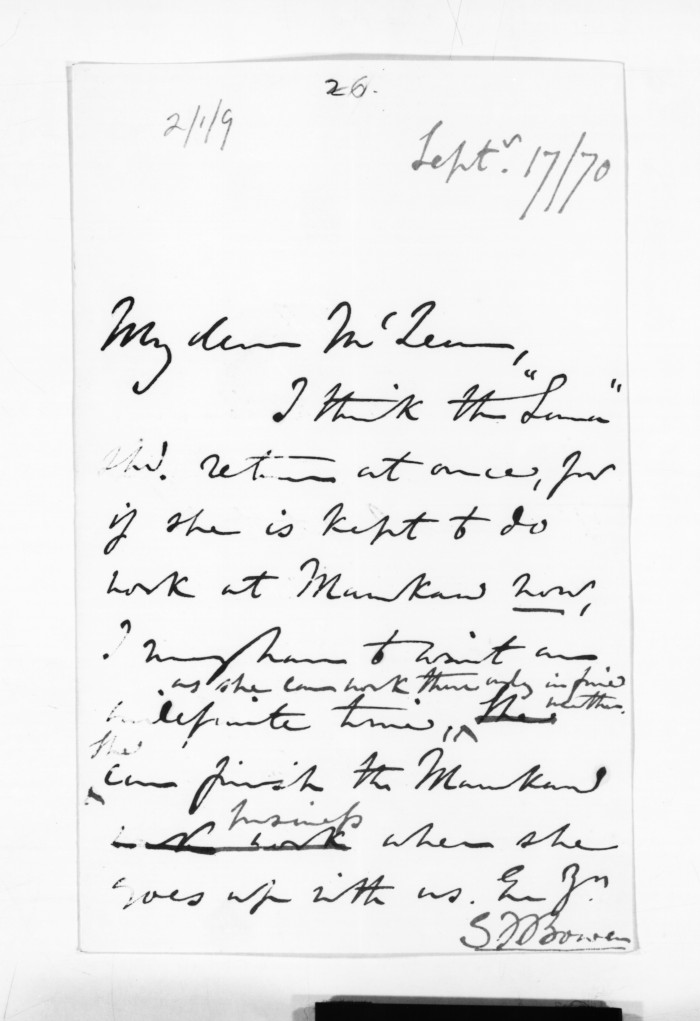 26.
2/1/9
Septr. 17/70
My dear McLean,
I think the "Luna"
shd. return at once, for
if she is kept to do
work at Manukau now,
I may have to wait an
as she can work there only in fine
weather.
indefinite time, She
She
can finish the Manukau
business
work when she
goes up with us.
GFBowen